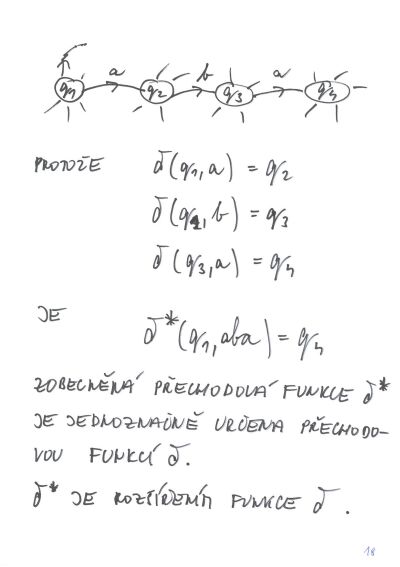 a b a
q1 q2 q3 q4
PROTOŽE δ(q1,a) = q2
δ(q2,b) = q3
δ(q3,a) = q4
JE
δ*(q1,aba) = q4
ZOBECNĚNÁ PŘECHODOVÁ FUNKCE δ*
JE JEDNOZNAČNĚ URČENA PŘECHODO-
VOU FUNKCÍ δ.
δ* JE ROZŠÍŘENÍM FUNKCE δ.
18